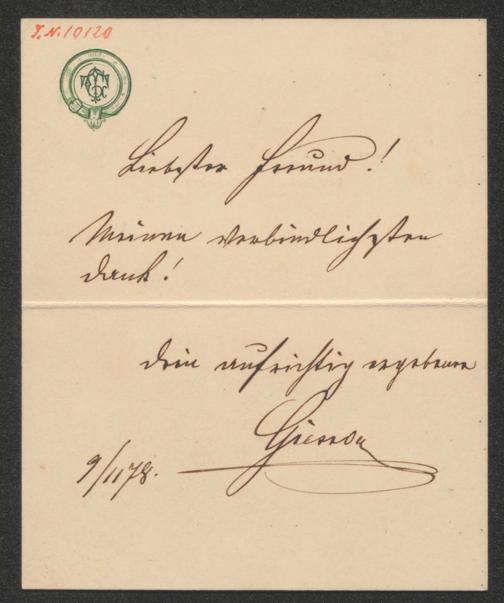 I.N. 10120
Liebster Freund!
Meinen verbindlichsten
Dank!
Dein aufrichtig ergebener
9/11 78.